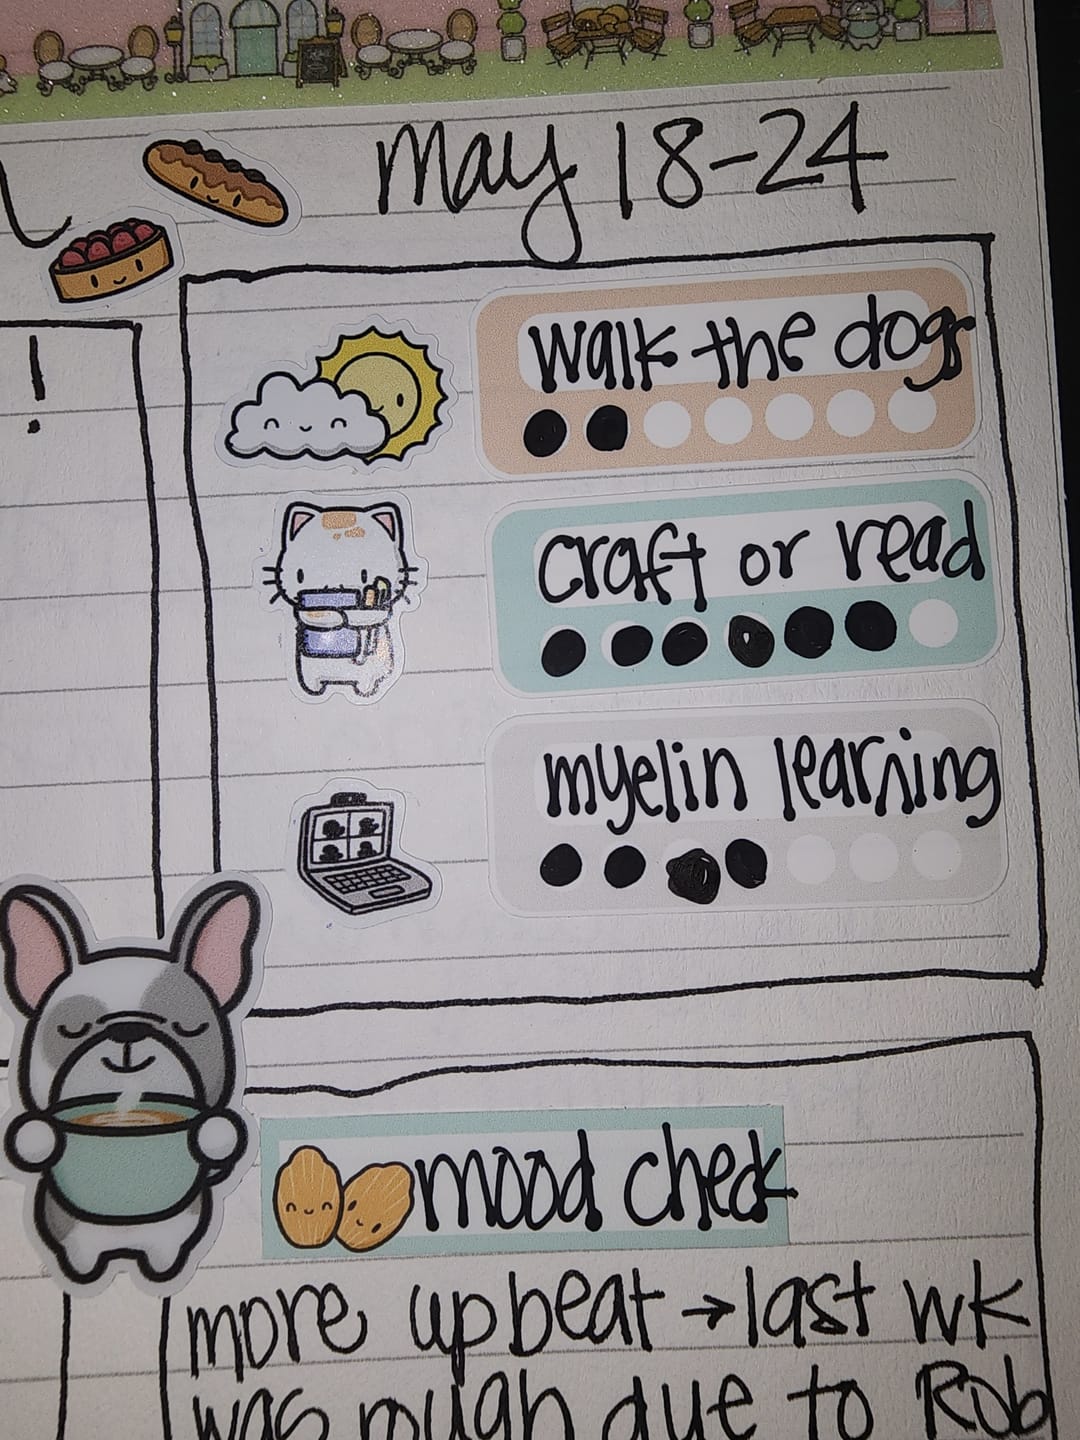 May 18-24
!
walk the dogs
craft or read
myelin learning
mood check
more upbeat → last wk
was rough due to Rob